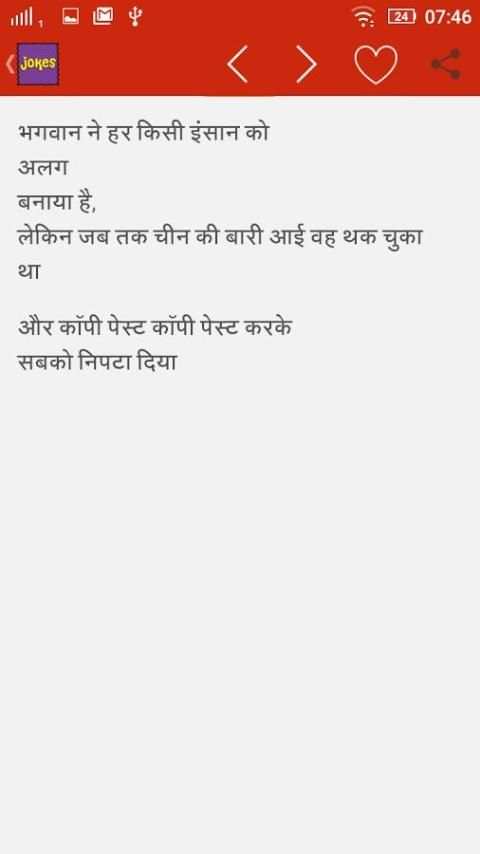 1 24 07:46
jokes
भगवान ने हर किसी इंसान को
अलग
बनाया है,
लेकिन जब तक चीन की बारी आई वह थक चुका
था
और कॉपी पेस्ट कॉपी पेस्ट करके
सबको निपटा दिया